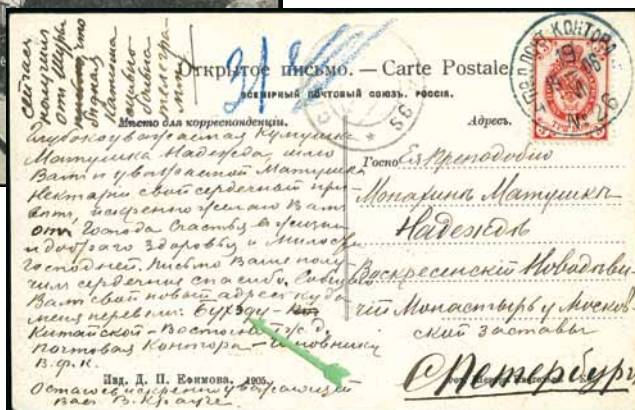 Сейчас
получил
от Шуры
что
бедная
Катюша
телеграмму
3/8
Открытое письмо. — Carte Postale.
ВСЕМІРНЫЙ ПОЧТОВЫЙ СОЮЗЪ. РОССІЯ.
Мѣсто для корреспонденціи.
Глубокоуважаемая Кумушка
Матушка Надежда, шлю
Вамъ и уважаемой Матушкѣ
Нектаріи свой сердечный при-
вѣт, искренно желаю Вамъ
отъ Господа Счастья в жизни
и добраго здоровья и милости
Господней. Письмо Ваше полу-
чилъ сердечное спасибо. Сообщаю
Вамъ свой новый адрес куда
меня перевели: Бухэду –
Китайской – Восточной ж. д.
почтовая Контора – Чиновнику
В. Ф. К.
Остаюсь искренно уважающій
Вас В. Краузе
Изд. Д. П. Ефимова. 1905.
Адресъ.
Госпо Ея Преподобію
Монахинѣ Матушкѣ
Надеждѣ
Воскресенскій Новодѣви-
чій Монастырь у Москов-
ской заставы
С Петербург
ГОР. ПОЧТ. КОНТОРА
19
VI
06
№ 26
56